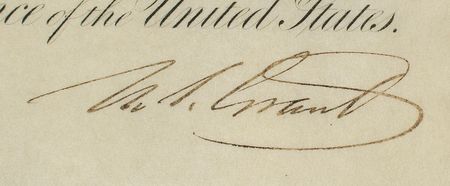 ce of the United States.
U. S. Grant